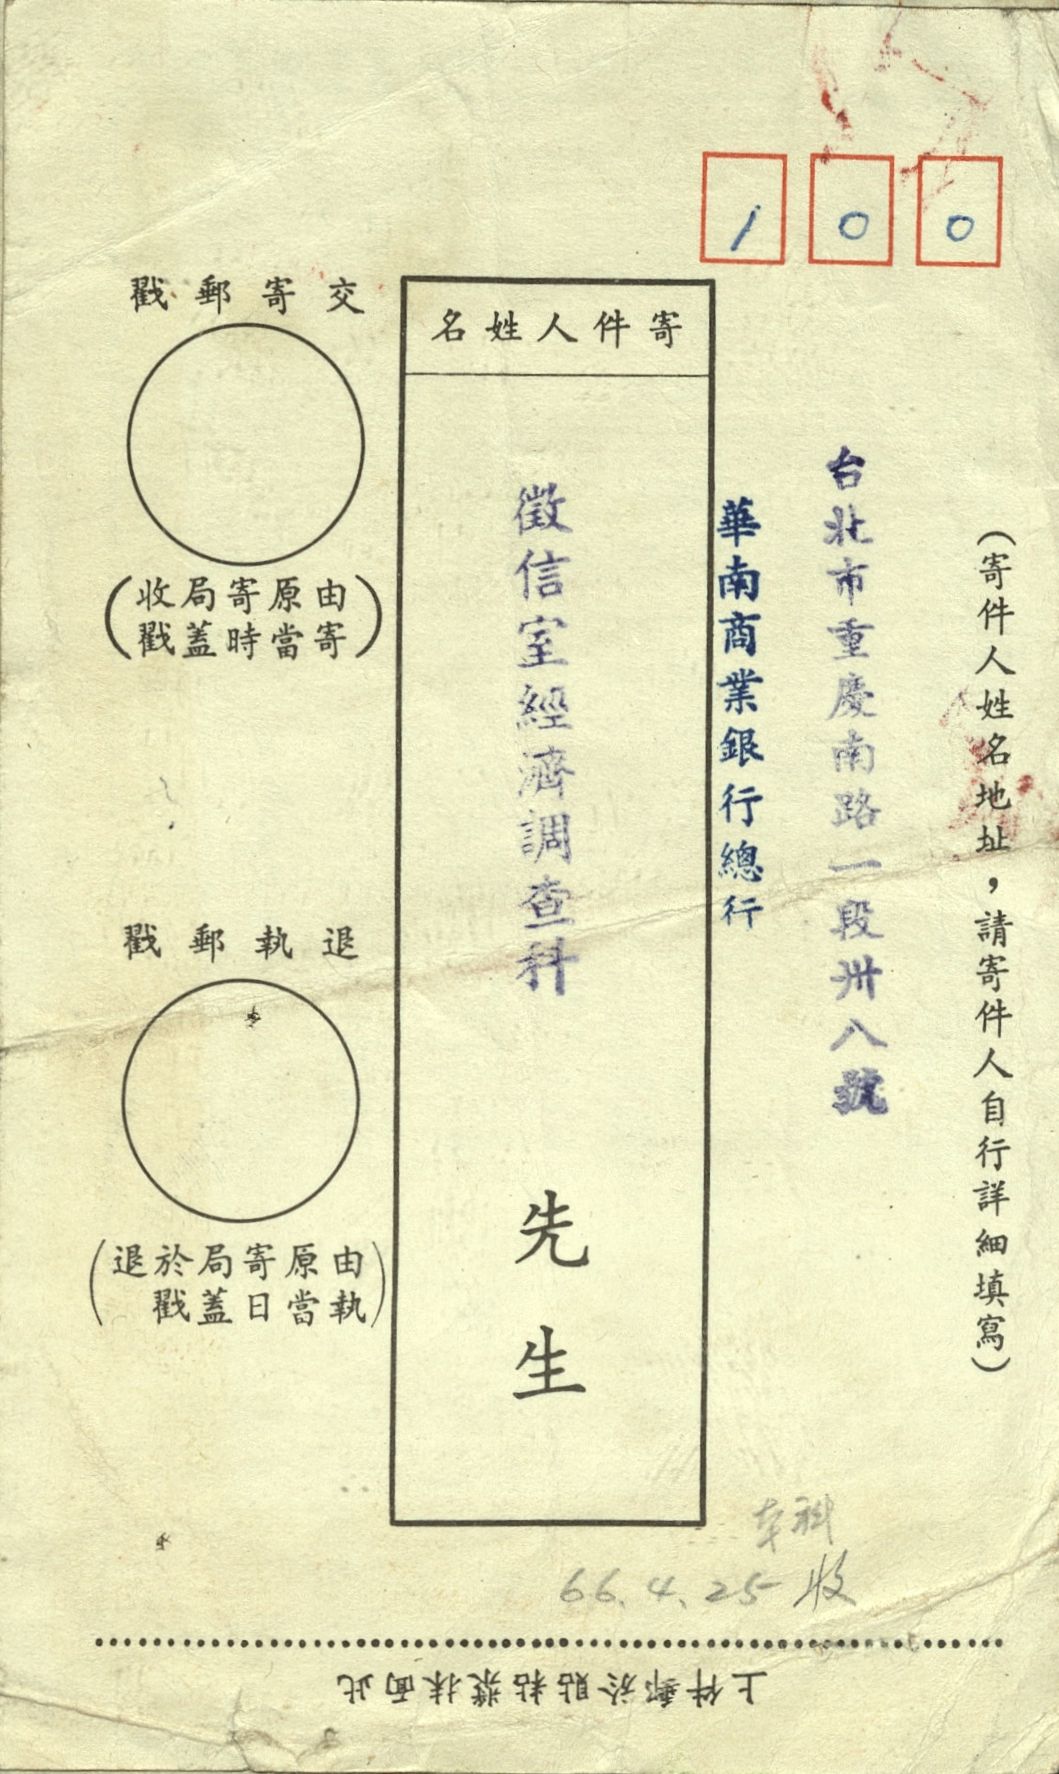 100
(寄件人姓名地址，請寄件人自行詳細填寫)
台北市重慶南路一段卅八號
華南商業銀行總行
寄件人姓名
徵信室經濟調查科
先生
交寄郵戳
(由原寄局收
寄當時蓋戳)
退執郵戳
(由原寄局於退
執當日蓋戳)
本科
66.4.25收
此面抹漿粘貼於郵件上